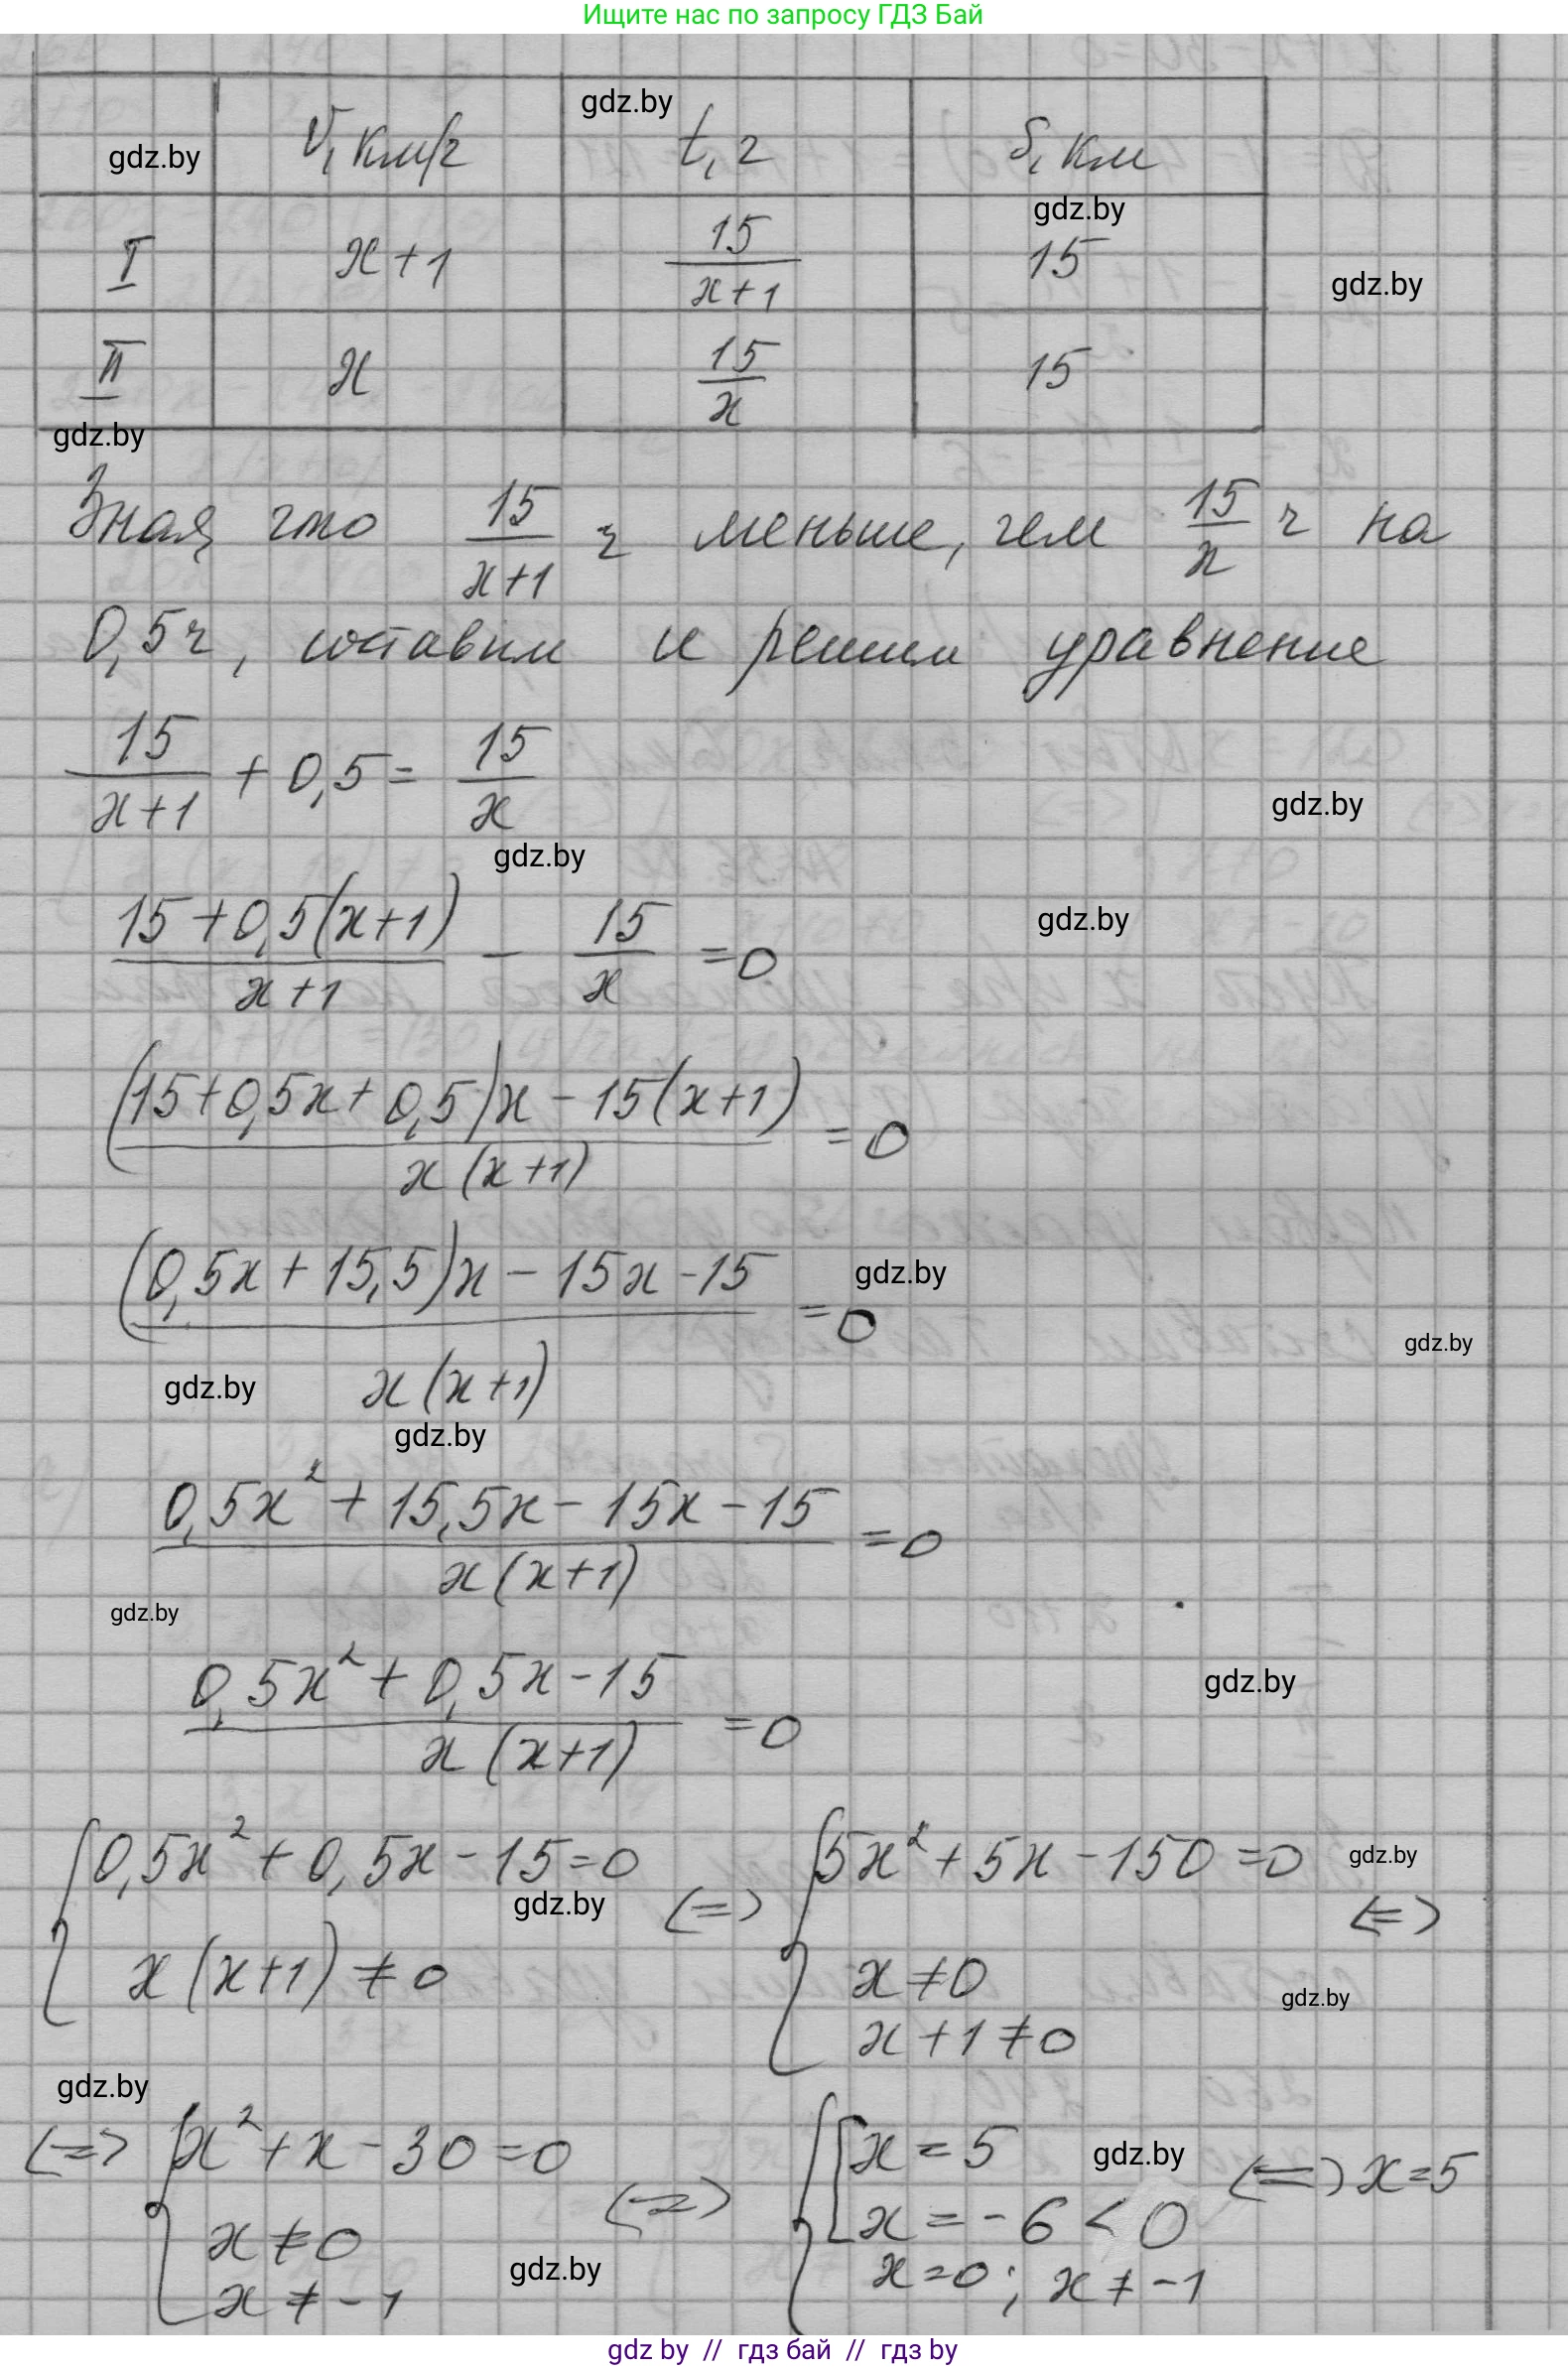 Ищите нас по запросу ГДЗ Бай
gdz.by
v, км/ч
gdz.by
t, ч
S, км
gdz.by
I
x+1
15/(x+1)
15
gdz.by
II
x
15/x
15
gdz.by
Зная, что 15/(x+1) ч меньше, чем 15/x ч на
0,5ч, составим и решим уравнение
15/(x+1) + 0,5 = 15/x
gdz.by
gdz.by
(15+0,5(x+1))/(x+1) - 15/x = 0
gdz.by
((15+0,5x+0,5)x - 15(x+1))/(x(x+1)) = 0
((0,5x+15,5)x - 15x - 15)/(x(x+1)) = 0
gdz.by
gdz.by
gdz.by
gdz.by
(0,5x² + 15,5x - 15x - 15)/(x(x+1)) = 0
gdz.by
(0,5x² + 0,5x - 15)/(x(x+1)) = 0
gdz.by
{ 0,5x² + 0,5x - 15 = 0
x(x+1) ≠ 0
gdz.by
<=> { 5x² + 5x - 150 = 0
x ≠ 0
x + 1 ≠ 0
<=>
gdz.by
gdz.by
gdz.by
<=> { x² + x - 30 = 0
x ≠ 0
x ≠ -1
gdz.by
<=> { [ x = 5
x = -6 < 0
x = 0; x ≠ -1
gdz.by
<=> x = 5
gdz by // гдз бай // гдз by